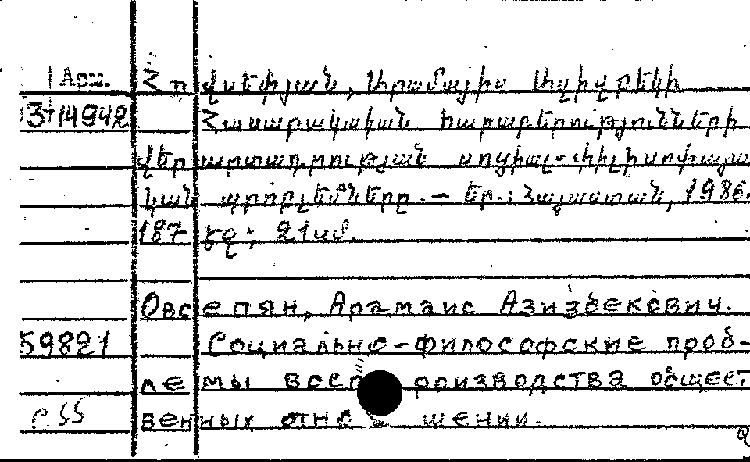 1 Арм. Հովսեփյան, Արամայիս Ազիզբեկի
3+14942 Հասարակական հարաբերությունների
վերարտադրության սոցիալ-փիլիսոփայա
կան պրոբլեմները. — Եր.: Հայաստան, 1986.
187 էջ; 21 սմ.
Овсепян, Арамаис Азизбекович.
59821 Социально-философские проб-
лемы восп роизводства общест
венных отно шении.